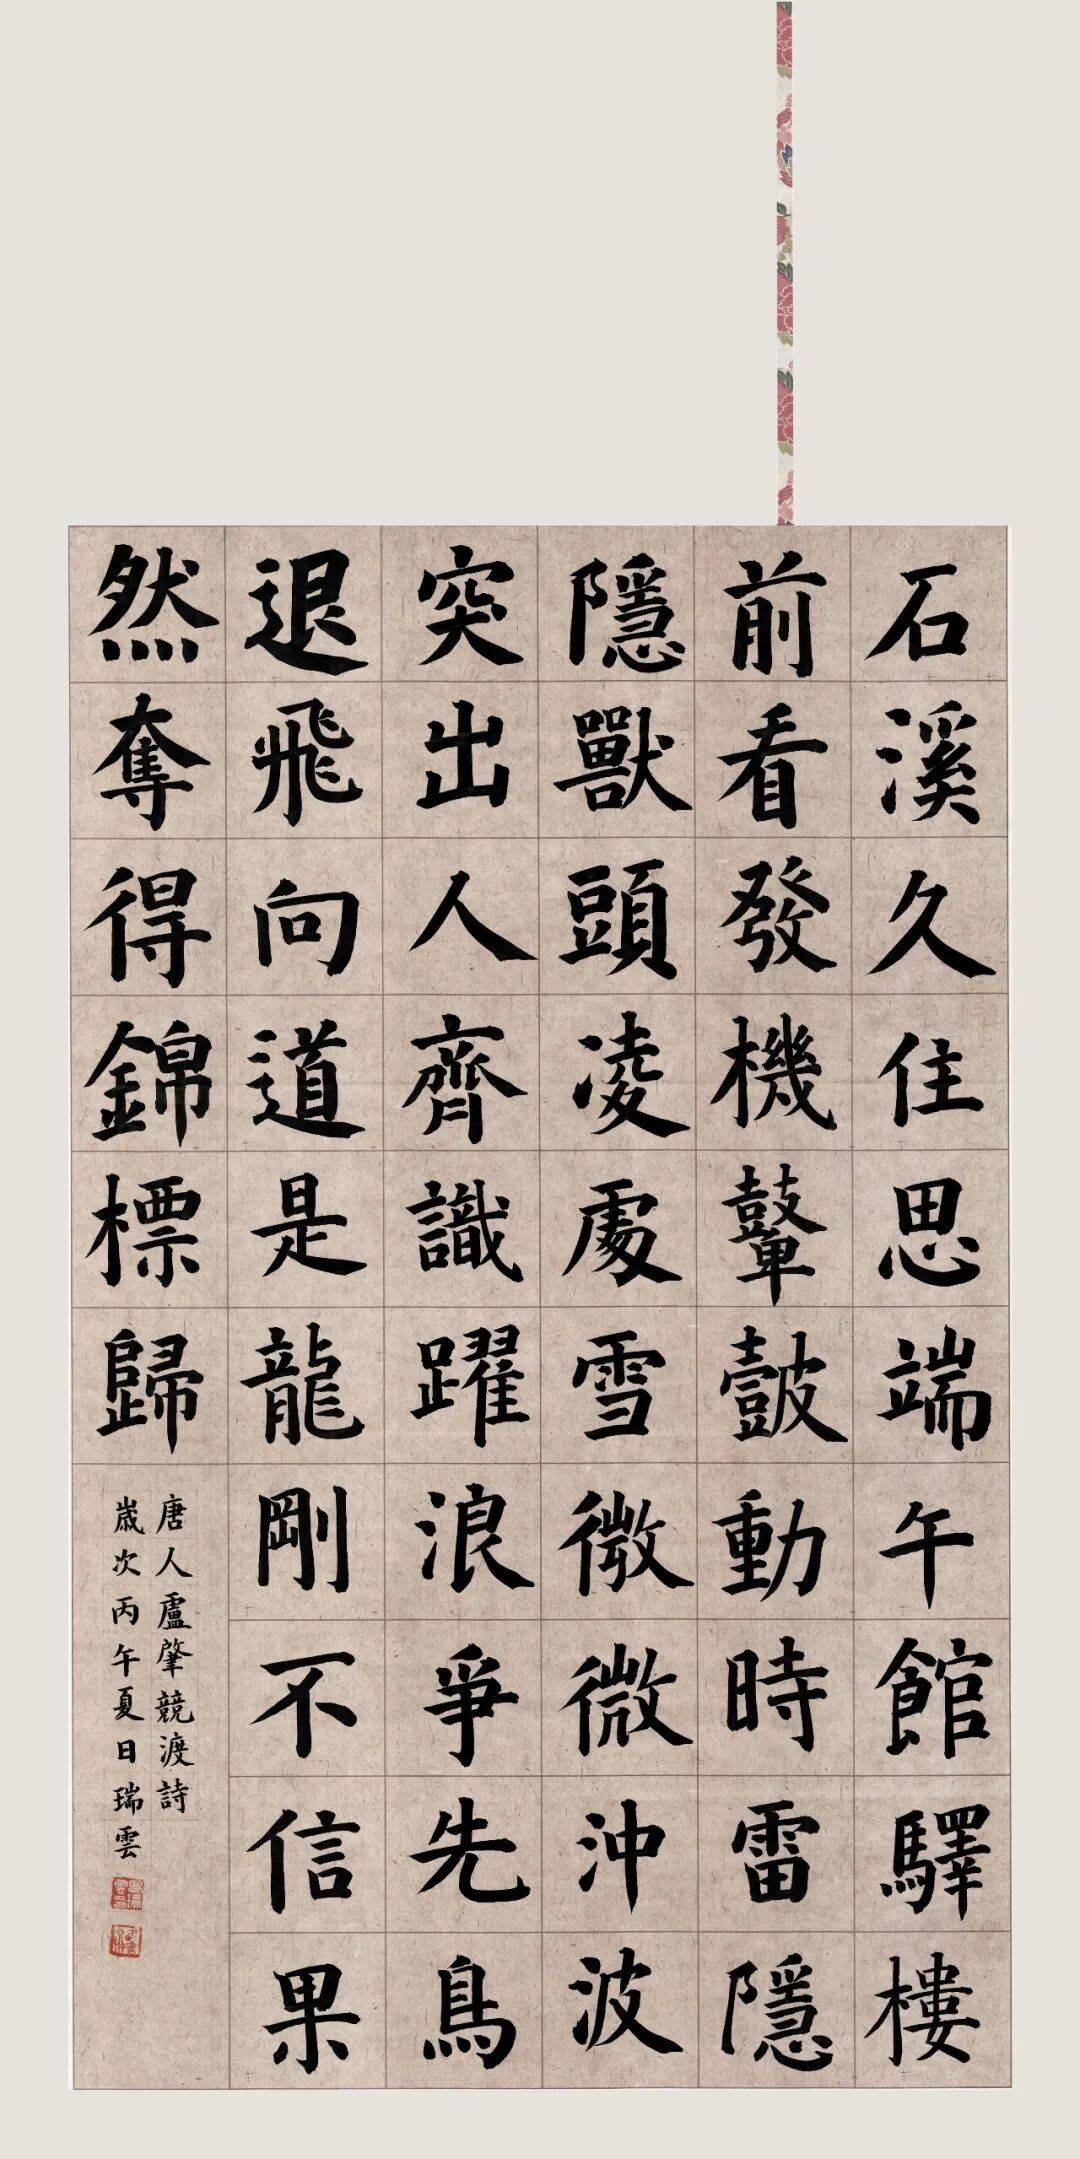 石溪久住思端午館驛樓
前看發機鼙鼓動時雷隱
隱獸頭凌處雪微微沖波
突出人齊識躍浪爭先鳥
退飛向道是龍剛不信果
然奪得錦標歸
唐人盧肇競渡詩
歲次丙午夏日瑞雲